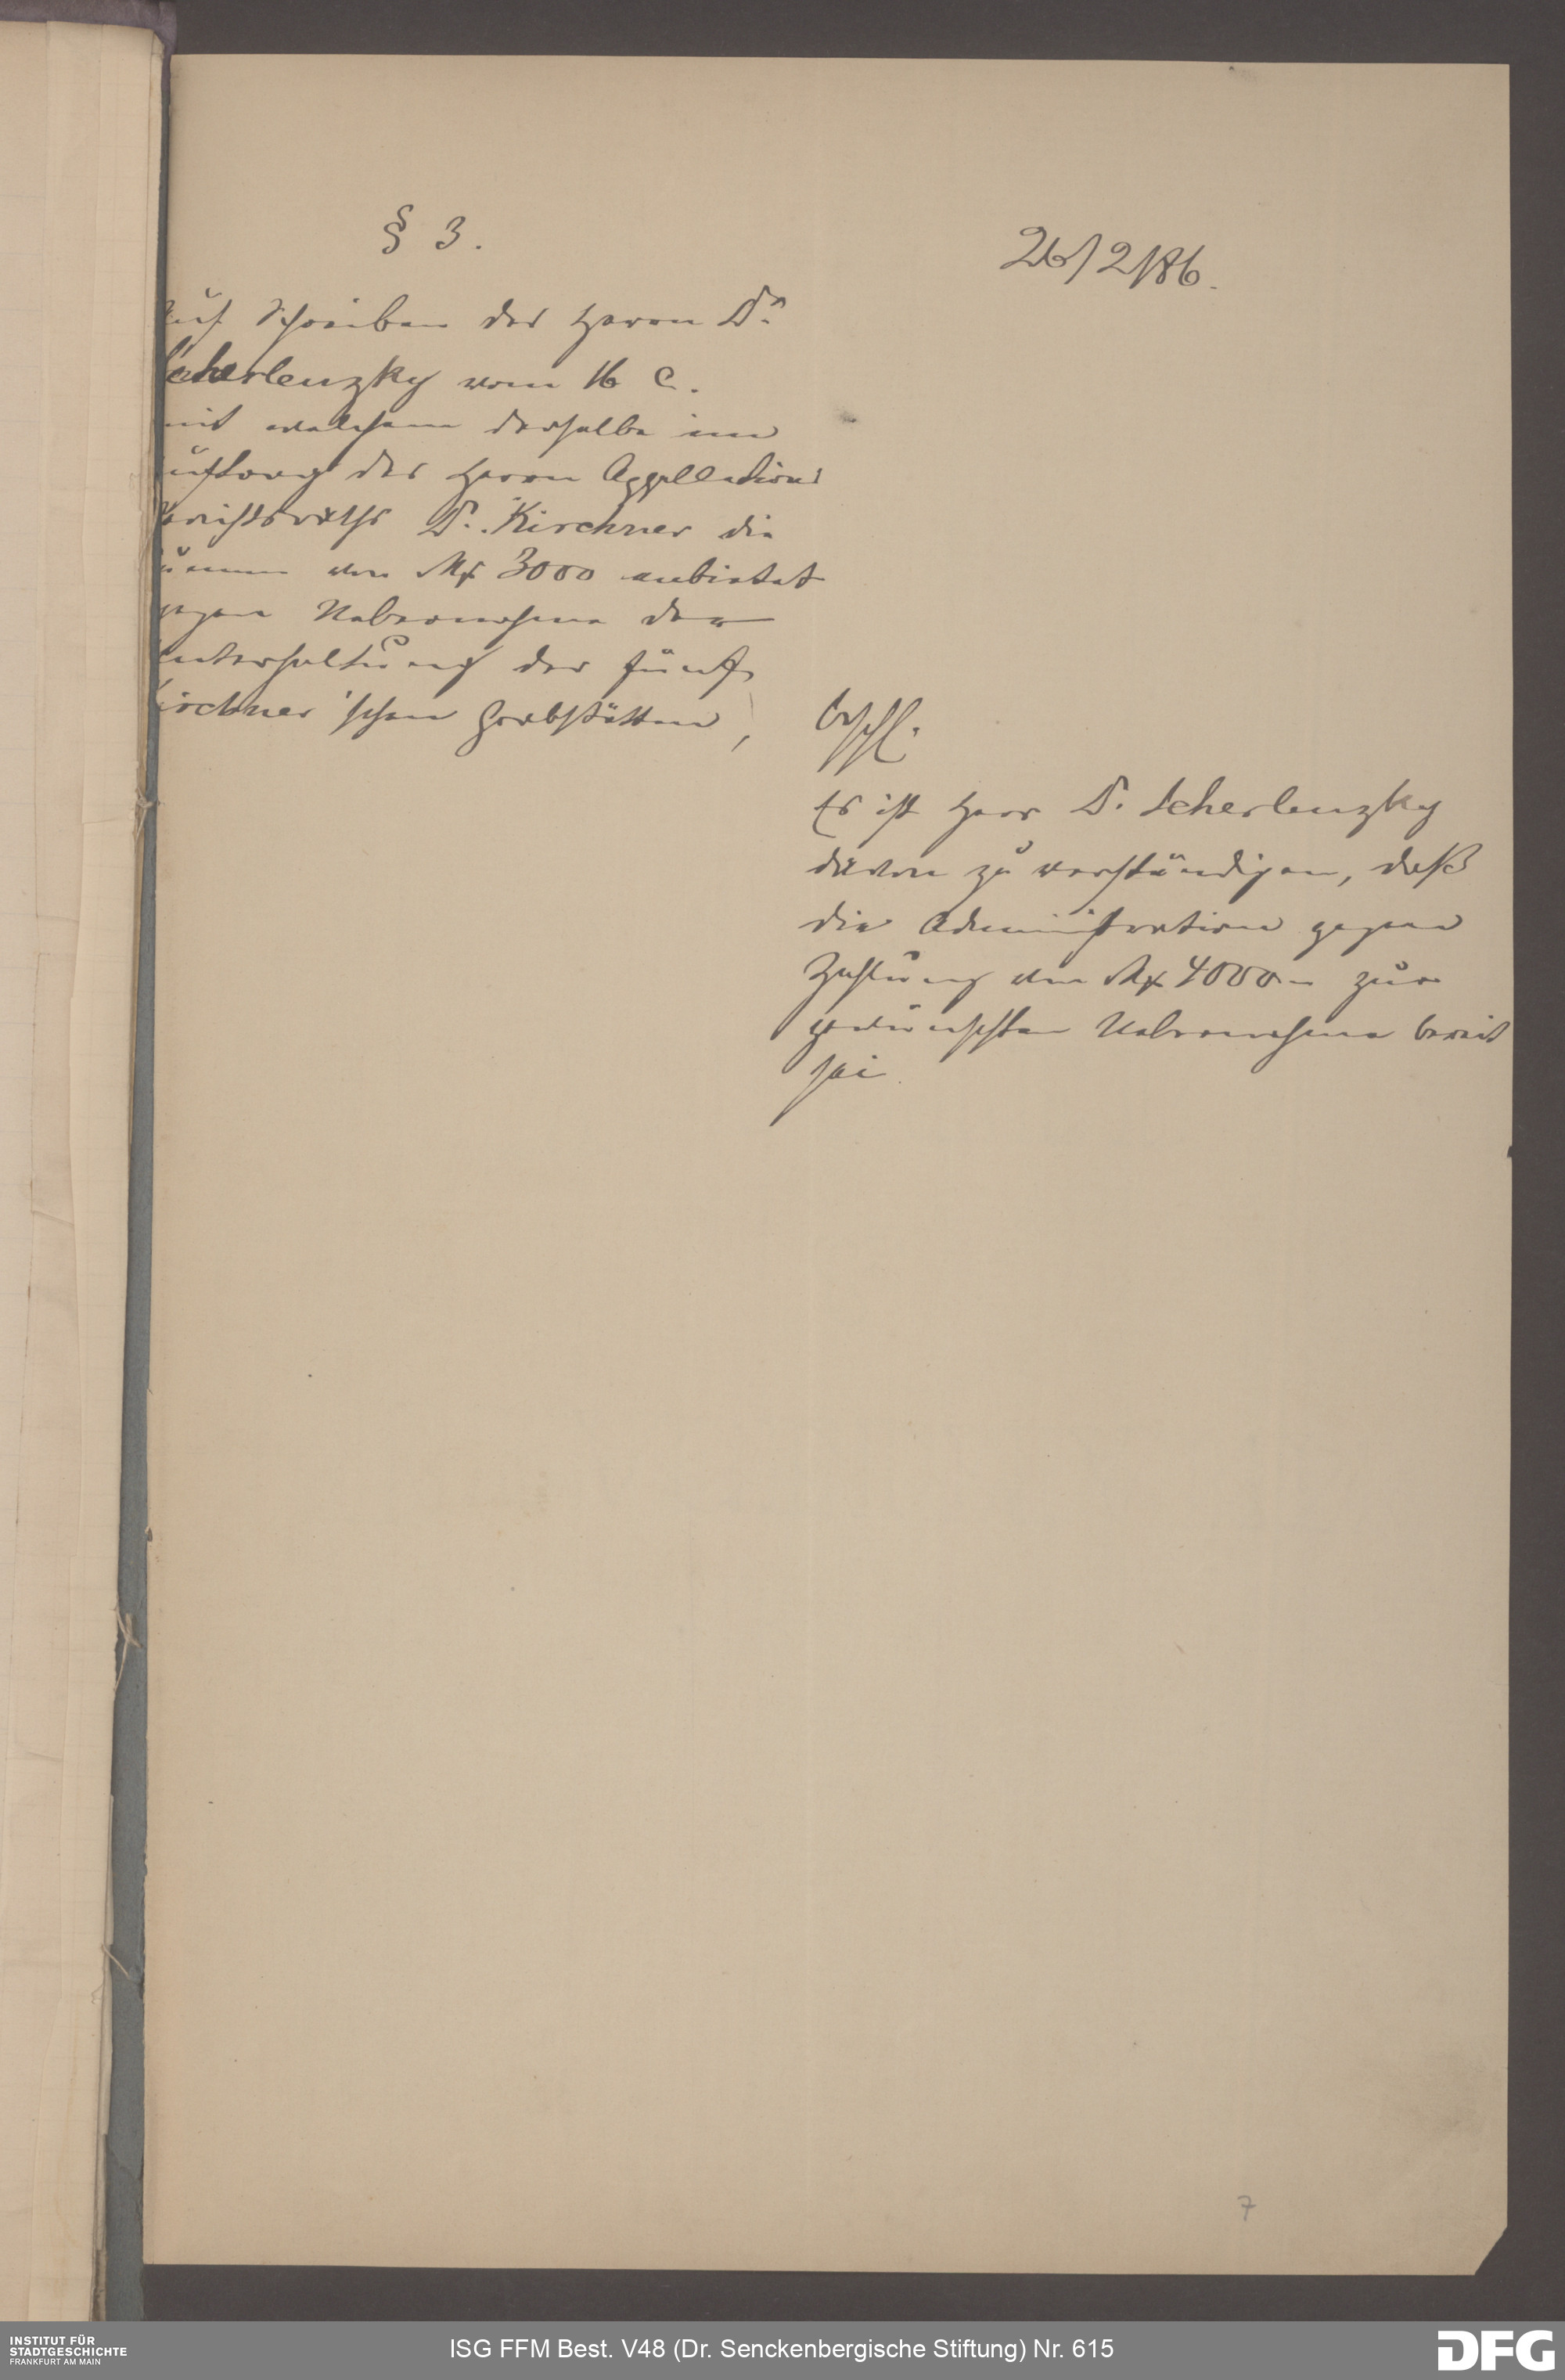 § 3.
26/2/86.
Auf Schreiben des Herrn Dr.
Scherlenzky vom 16 c.
mit welchem derselbe im
Auftrag des Herrn Appellations
gerichtsraths Dr. Kirchner die
Summe von Mk 3000 anbietet
gegen Uebernahme der
Unterhaltung der fünf
Kirchner'schen Grabstätten,
beschl.
Es ist Herr Dr. Scherlenzky
davon zu verständigen, daß
die Administration gegen
Zahlung von Mk 4000 – zur
gewünschten Uebernahme bereit
sei.
7
INSTITUT FÜR
STADTGESCHICHTE
FRANKFURT AM MAIN
ISG FFM Best. V48 (Dr. Senckenbergische Stiftung) Nr. 615
DFG